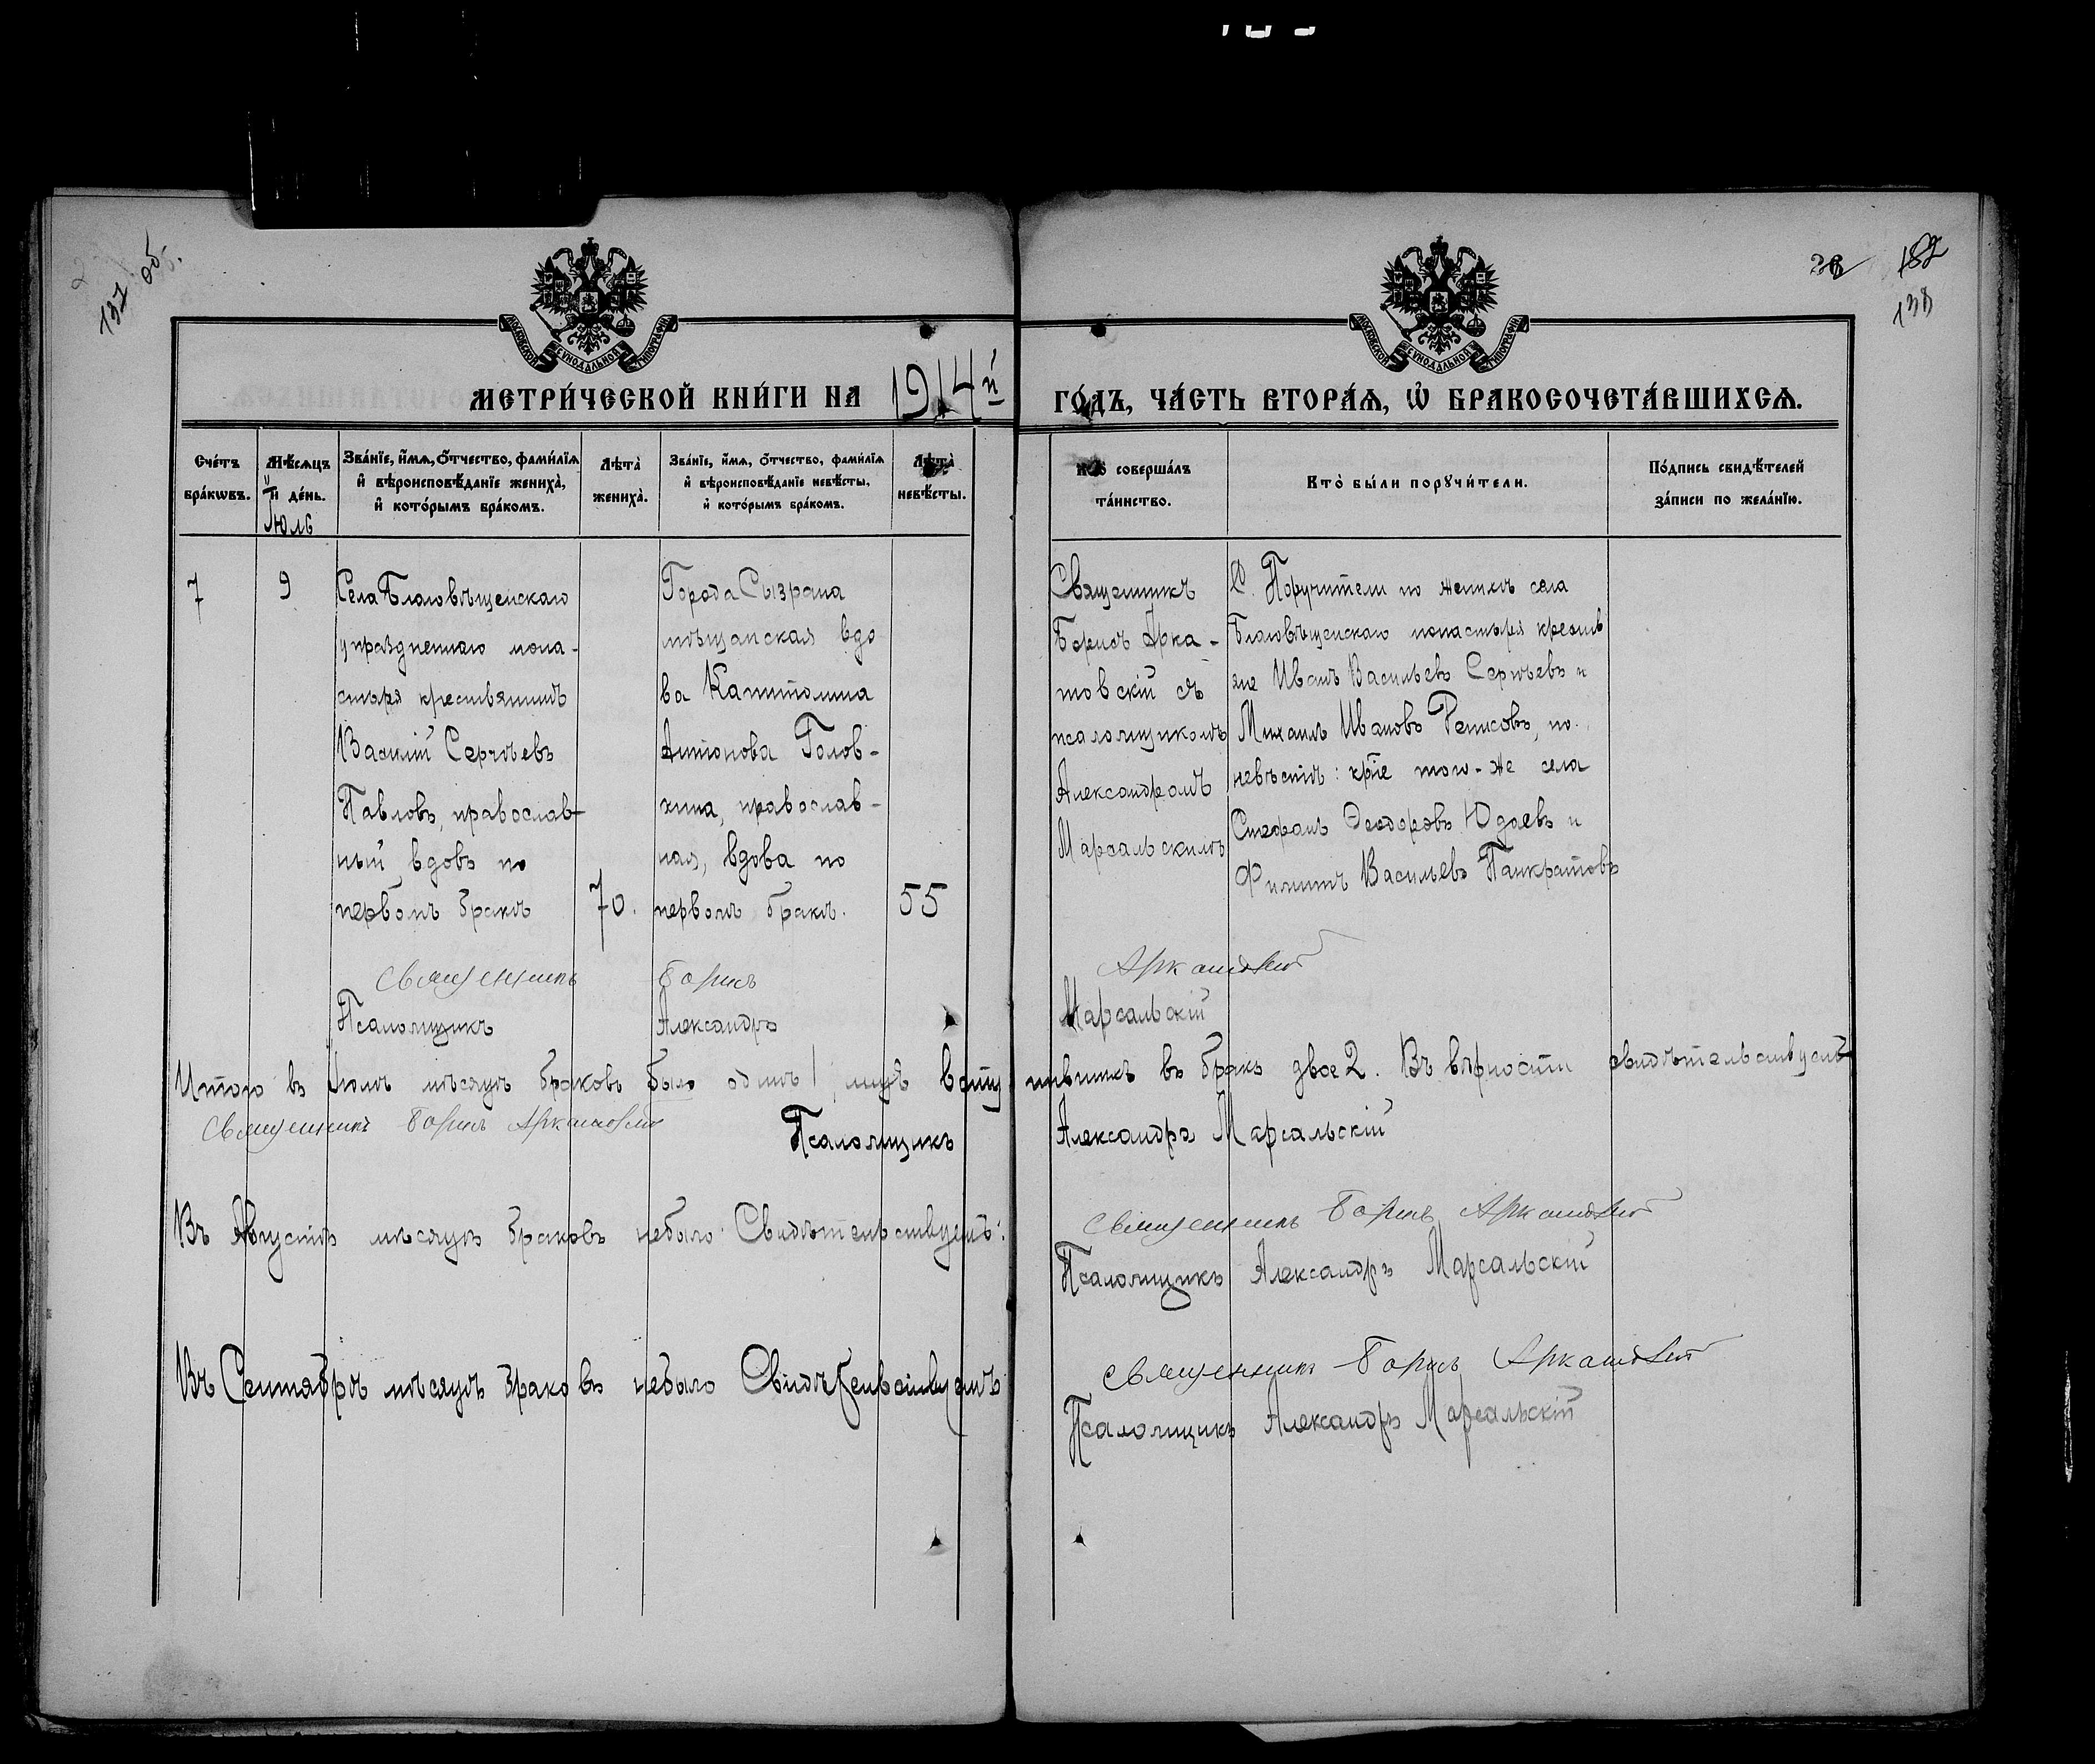 131 об.
32 182
138
МОСКОВСКОЙ СѴНОДАЛЬНОЙ ТИПОГРАФІИ
МОСКОВСКОЙ СѴНОДАЛЬНОЙ ТИПОГРАФІИ
МЕТРИ́ЧЕСКОЙ КНИ́ГИ НА 1914й ГО́ДЪ, ЧА́СТЬ ВТОРА́Ѧ, Ѡ҆ БРАКОСОЧЕТА́ВШИХСѦ.
Сче́тъ
бра́кѡвъ.
Мѣ́сѧцъ
и҆ де́нь.
Іюль
Зва́нїе, и҆́мѧ, о҆́тчество, фами́лїѧ
и҆ вѣроисповѣ́данїе женихà,
и҆ кото́рымъ бра́комъ.
Лѣтà
женихà.
Зва́нїе, и҆́мѧ, о҆́тчество, фами́лїѧ
и҆ вѣроисповѣ́данїе невѣ́сты,
и҆ кото́рымъ бра́комъ.
Лѣтà
невѣ́сты.
Кто̀ соверша́лъ
та́инство.
Кто̀ бы́ли порꙋчи́тели.
По́дпись свидѣ́телей
за́писи по жела́нїю.
7
9
Села Благовѣщенскаго
упраздненнаго мона-
стыря крестьянинъ
Василій Сергѣевъ
Павловъ, православ-
ный, вдовъ по
первомъ бракѣ
70.
Города Сызрана
мѣщанская вдо
ва Капитолина
Антонова Голов-
кина, православ-
ная, вдова по
первомъ бракѣ.
55
Священникъ
Борисъ Арка-
товскій съ
псаломщикомъ
Александромъ
Марсальскимъ
Поручители по женихѣ села
Благовѣщенскаго монастыря крестья
не Иванъ Васильевъ Сергѣевъ и
Михаилъ Ивановъ Денисовъ, по
невѣстѣ: кр̃не того-же села
Стефанъ Ѳеодоровъ Юдаевъ и
Филиппъ Васильевъ Панкратовъ
Священникъ Борисъ Аркатовскій
Псаломщикъ Александръ Марсальскій
Итого въ Іюлѣ мѣсяцѣ браковъ было одинъ 1, лицъ вступившихъ въ бракъ двое 2. Въ вѣрности свидѣтельствуетъ
Священникъ Борисъ Аркатовскій Псаломщикъ Александръ Марсальскій
Въ Августѣ мѣсяцѣ браковъ небыло. Свидѣтельствуетъ: Священникъ Борисъ Аркатовскій
Псаломщикъ Александръ Марсальскій
Въ Сентябрѣ мѣсяцѣ браковъ небыло Свидѣтельствуетъ Священникъ Борисъ Аркатовскій
Псаломщикъ Александръ Марсальскій